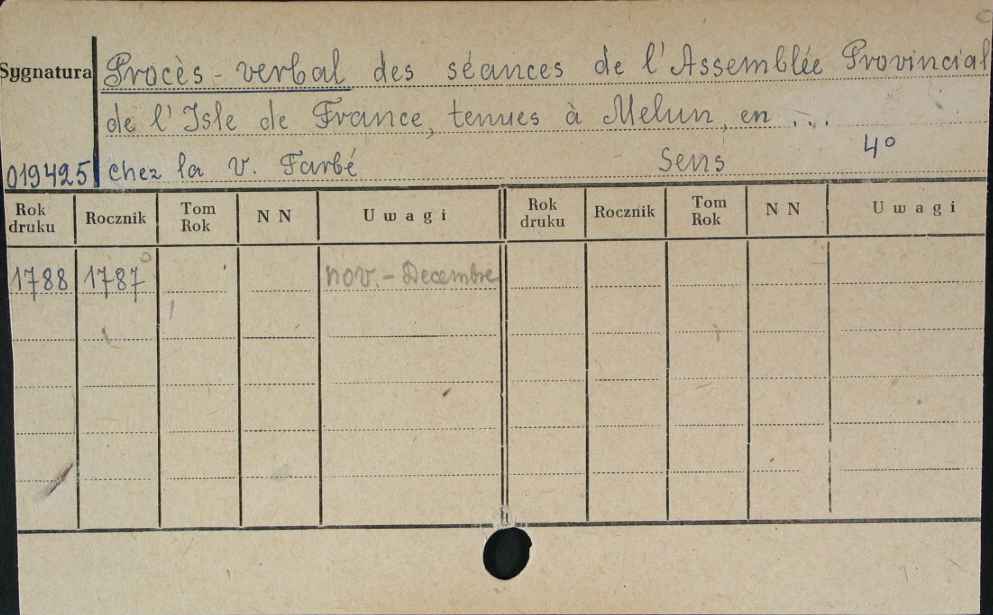 Sygnatura Procès-verbal des séances de l'Assemblée Provincial
de l'Isle de France, tenues à Melun, en ...
019425 chez la v. Farbé Sens 4º
Rok druku Rocznik Tom Rok N N Uwagi Rok druku Rocznik Tom Rok N N Uwagi
1788 1787 nov. - Decembre